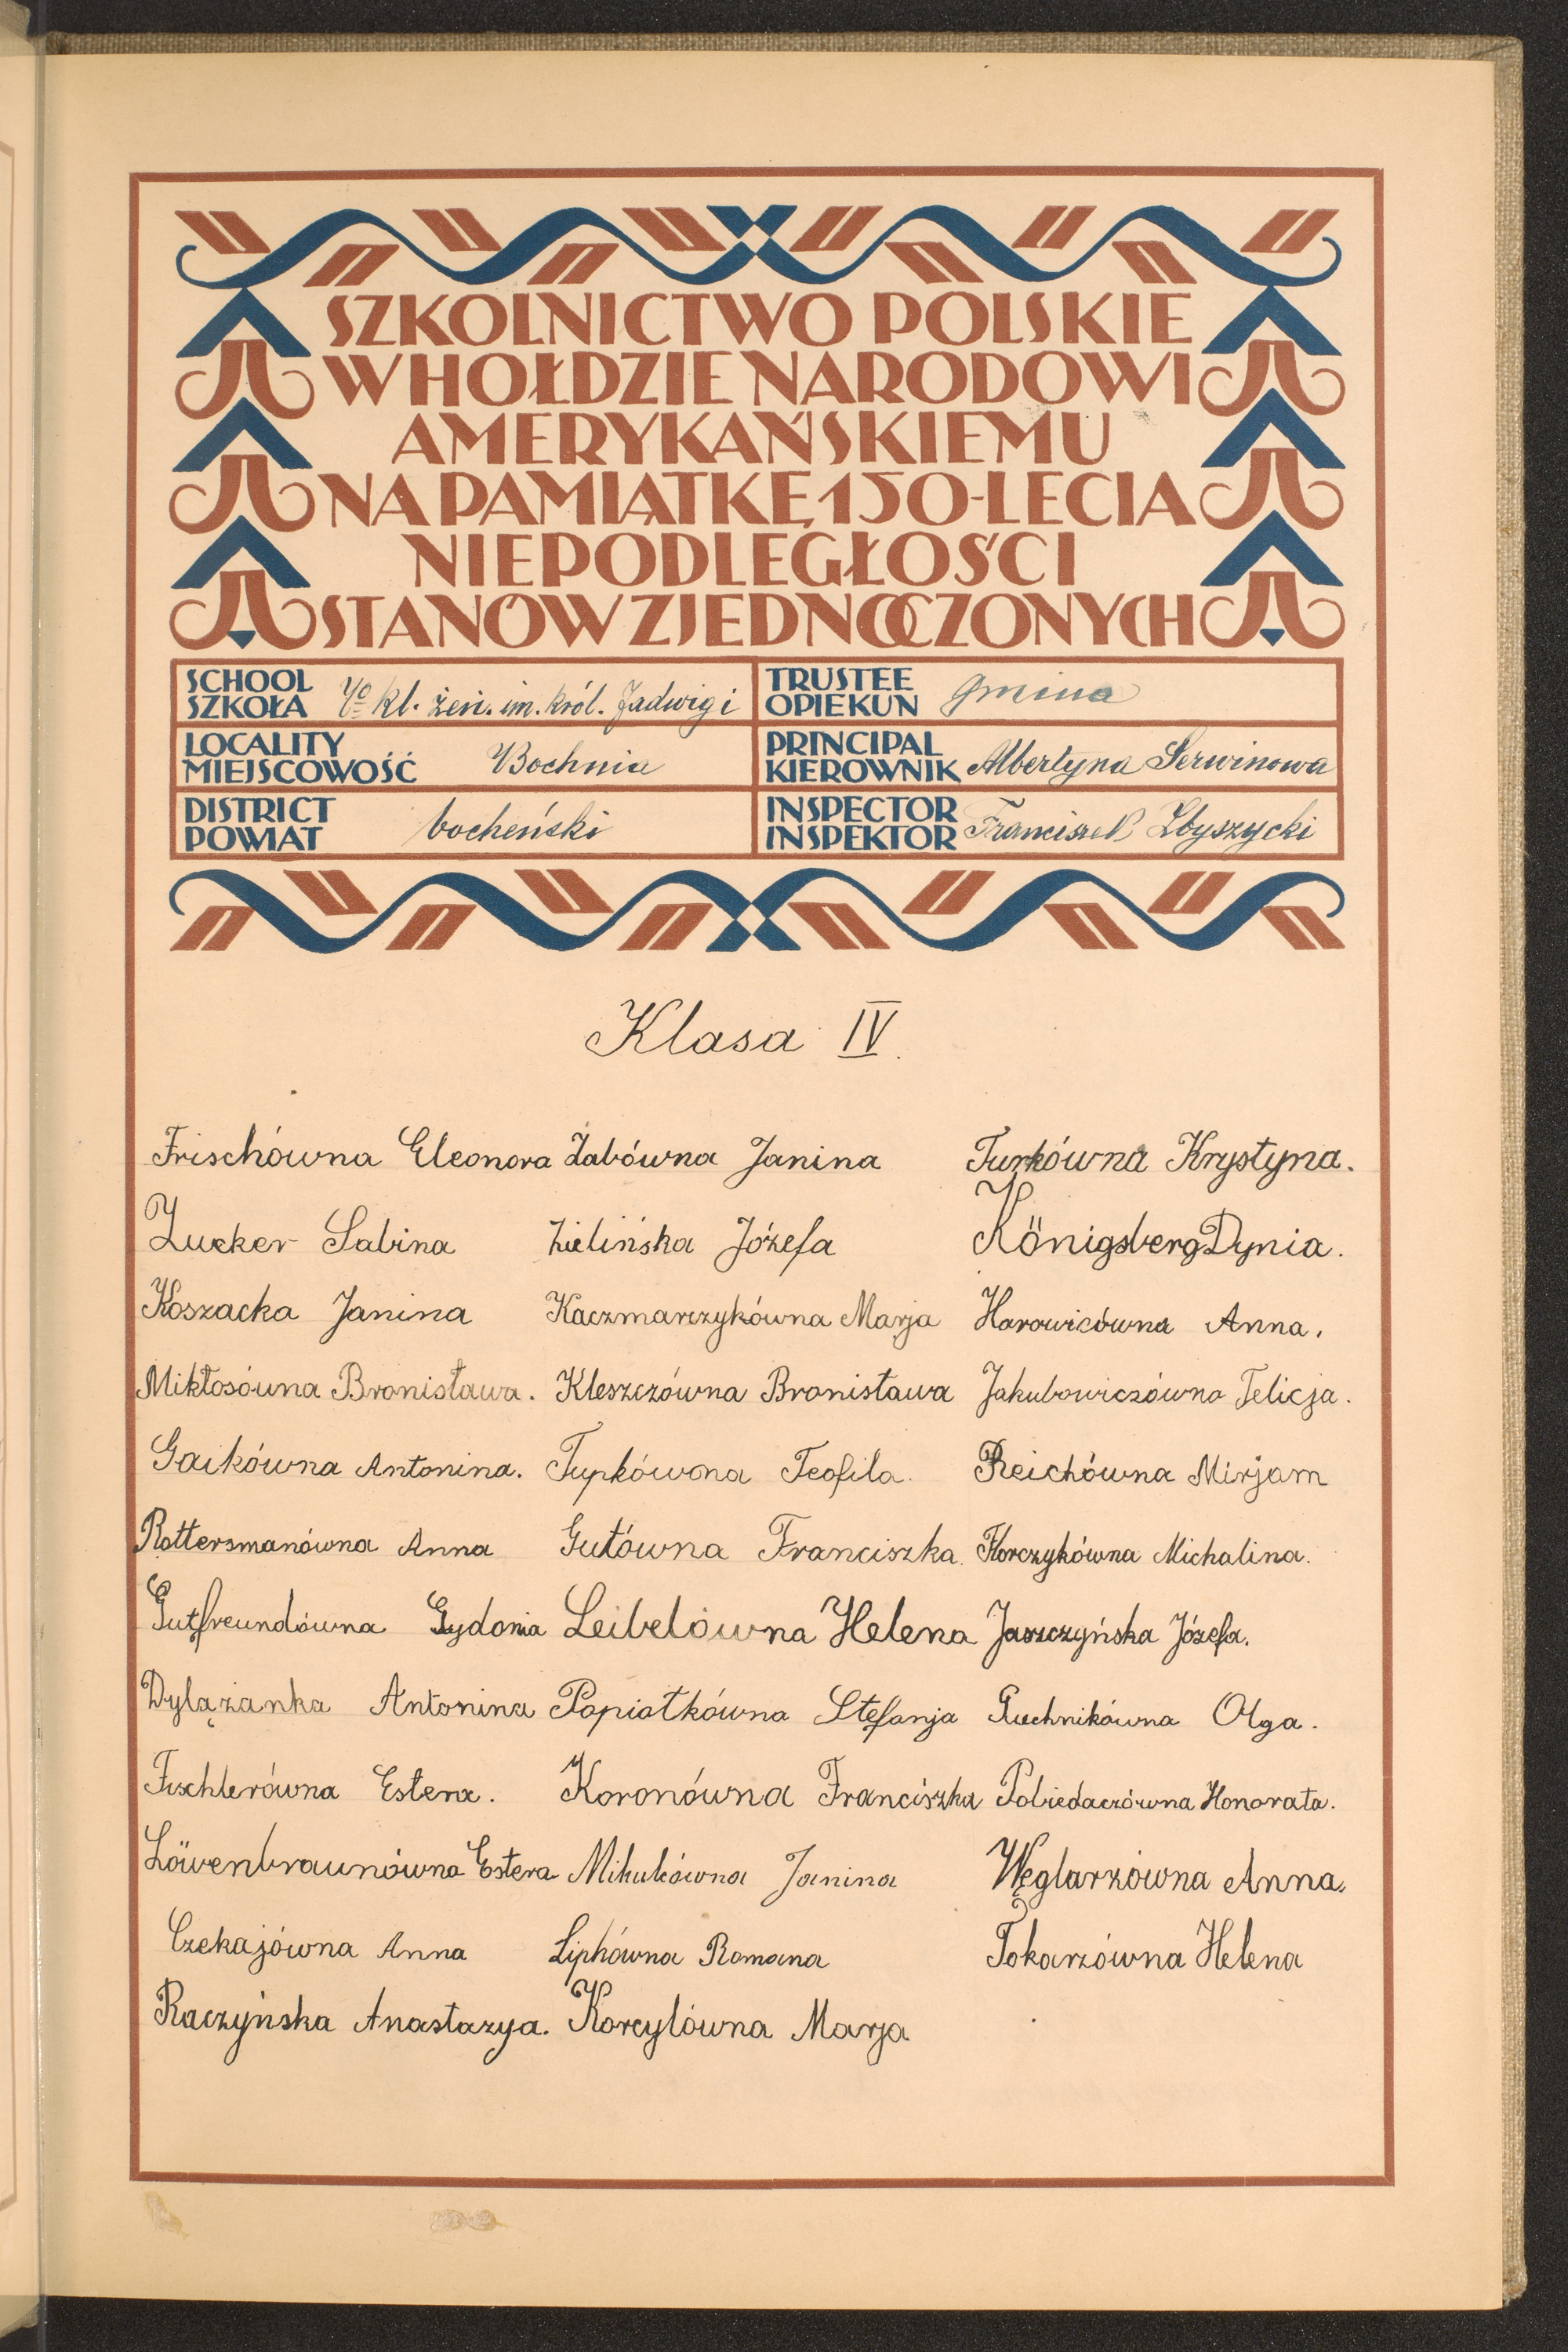 SZKOLNICTWO POLSKIE
W HOŁDZIE NARODOWI
AMERYKAŃSKIEMU
NA PAMIĄTKĘ 150-LECIA
NIEPODLEGŁOŚCI
STANÓW ZJEDNOCZONYCH
SCHOOL
SZKOŁA kl. żeń. im. król. Jadwigi
TRUSTEE
OPIEKUN Gmina
LOCALITY
MIEJSCOWOŚĆ Bochnia
PRINCIPAL
KIEROWNIK Albertyna Serwinowa
DISTRICT
POWIAT bocheński
INSPECTOR
INSPEKTOR Franciszek Zbyszycki
Klasa IV.
Frischówna Eleonora Żabówna Janina Turkówna Krystyna.
Zucker Sabina Zielińska Józefa Königsberg Dynia.
Koszacka Janina Kaczmarczykówna Marja Horowicówna Anna.
Mikłosówna Bronisława. Kleszczówna Bronisława Jakubowiczówna Felicja.
Gaikówna Antonina. Tupkówna Teofila. Reichówna Mirjam
Rottersmanówna Anna Gutówna Franciszka Korczykówna Michalina.
Gutfreundówna Sydonia Leibelówna Helena Jaszczyńska Józefa.
Dylążanka Antonina Papiatkówna Stefanja Puchnikówna Olga.
Fischlerówna Estera. Koronówna Franciszka Pobiedaczówna Honorata.
Löwenbraunówna Estera Mikulówna Janina Węglarzówna Anna.
Czekajówna Anna Lipkówna Romana Tokarzówna Helena
Raczyńska Anastazya. Korcylówna Marja